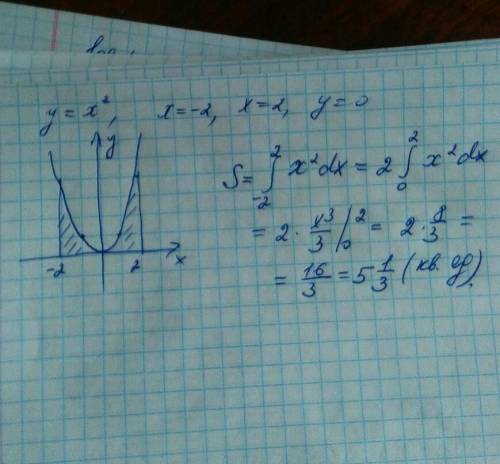 y = x², x = -2, x = 2, y = 0
y
-2 2 x
S = ∫₋₂² x²dx = 2 ∫₀² x²dx
= 2 · x³/3 |₀² = 2 · 8/3 =
= 16/3 = 5 1/3 (кв. ед).